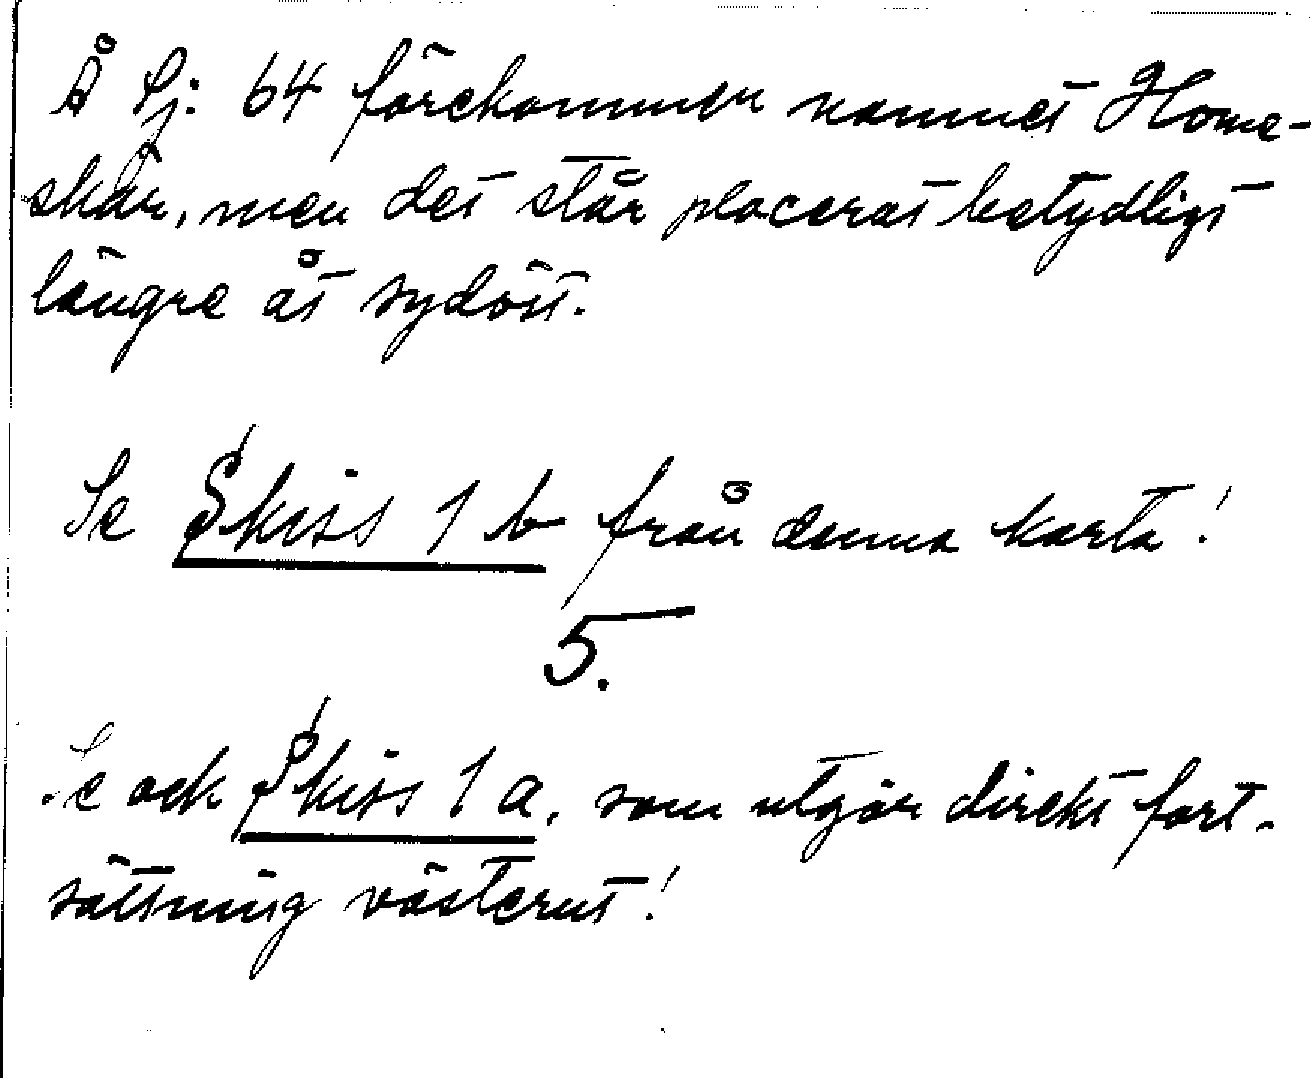 Å Sj: 64 förekommer namnet Home-
skär, men det står placerat betydligt
längre åt sydöst.
Se Skiss 1 b från denna karta!
5.
Se ock Skiss 1 a, som utgör direkt fort-
sättning västerut!